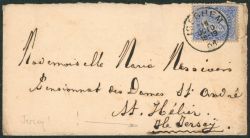 Mademoiselle Maria
Pensionnat des Dames St André
St. Hélier
Ile Jersey
Jersey